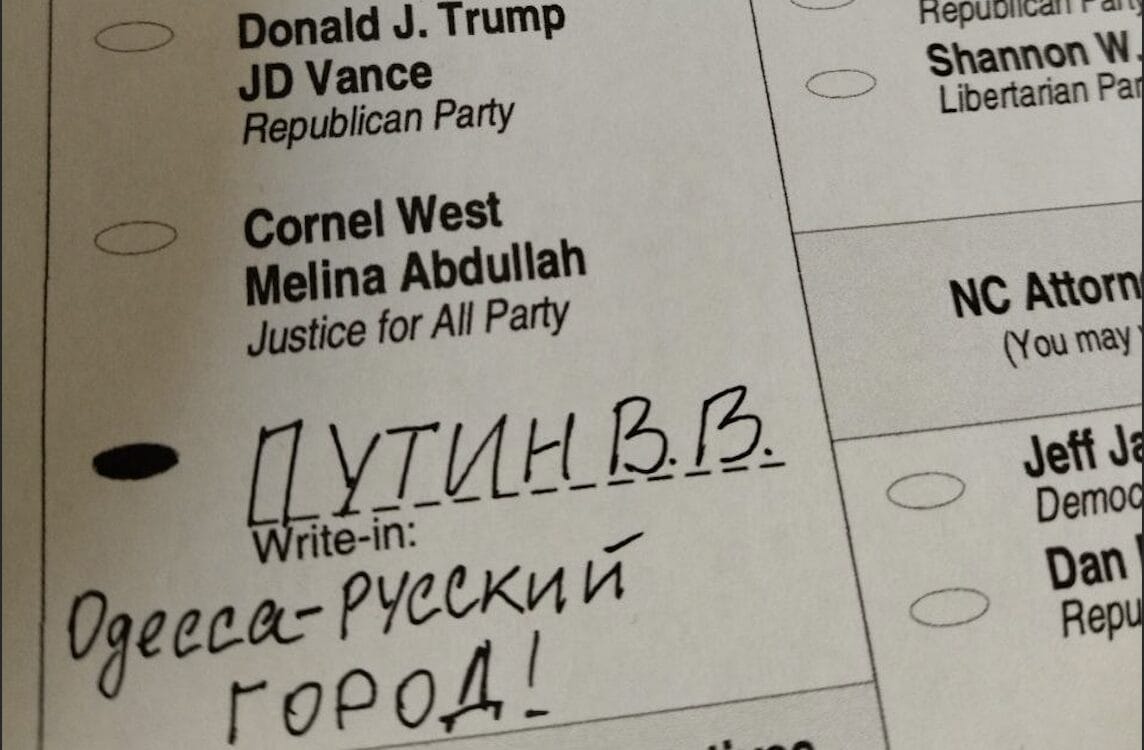 Donald J. Trump
JD Vance
Republican Party
Cornel West
Melina Abdullah
Justice for All Party
ПУТИН В.В.
Write-in:
Одесса-РУССКИЙ
ГОРОД!
Republican
Shannon W.
Libertarian
NC
(You may
Jeff
Dan